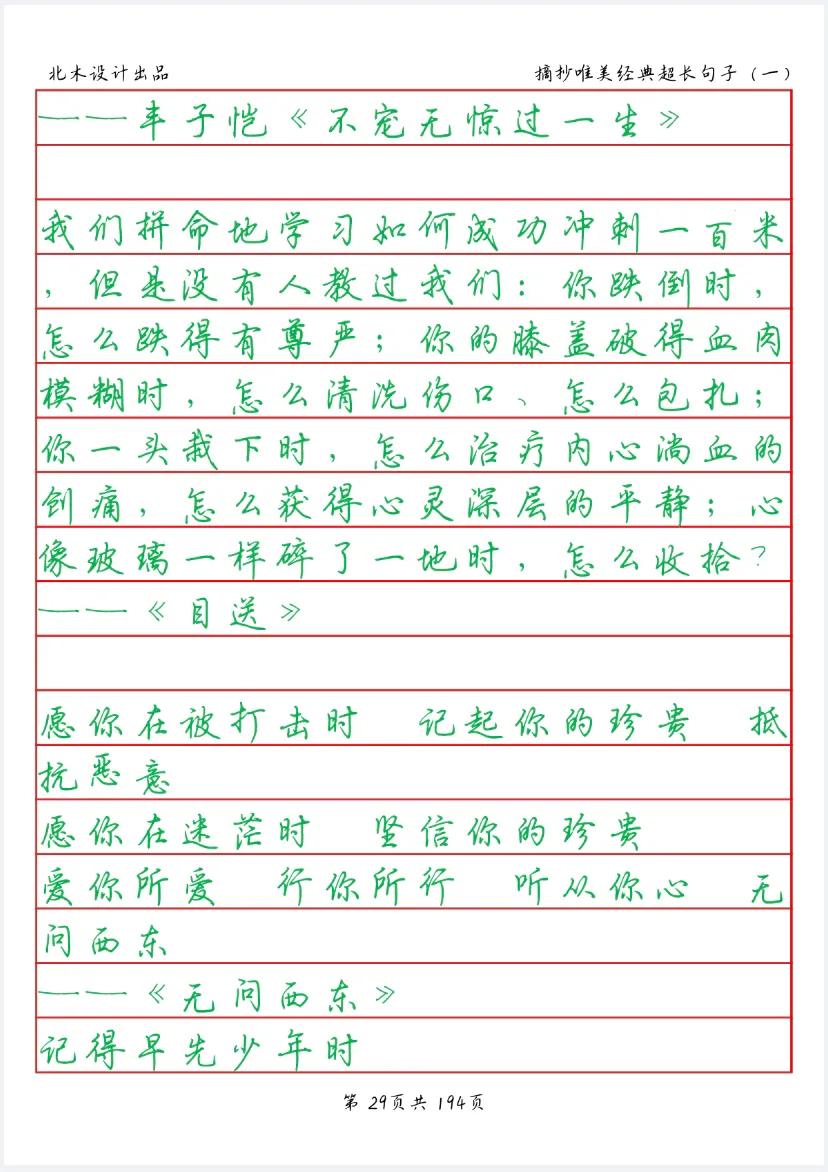 北木设计出品
摘抄唯美经典超长句子（一）
——丰子恺《不宠无惊过一生》
我们拼命地学习如何成功冲刺一百米
，但是没有人教过我们：你跌倒时，
怎么跌得有尊严；你的膝盖破得血肉
模糊时，怎么清洗伤口、怎么包扎；
你一头栽下时，怎么治疗内心淌血的
创痛，怎么获得心灵深层的平静；心
像玻璃一样碎了一地时，怎么收拾？
——《目送》
愿你在被打击时　记起你的珍贵　抵
抗恶意
愿你在迷茫时　坚信你的珍贵
爱你所爱　行你所行　听从你心　无
问西东
——《无问西东》
记得早先少年时
第 29页共 194页